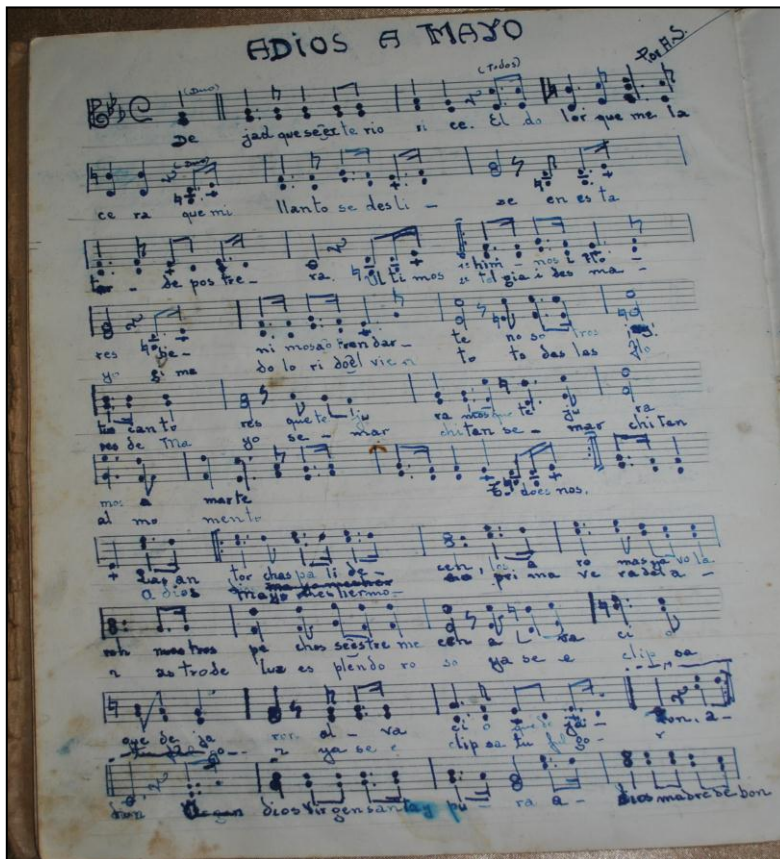 ADIOS A MAYO
Por A.S.
(Duo) (Todos)
De jad que se ex te rio ri ce. El do lor que me la
(Duo)
ce ra que mi llanto se desli - se en es ta
tar - de pos tre - ra. Ul ti mos
res be - ni mos a o fren dar - te no so tros
yo gi ma do lo ri do el vien to to das las flo
tro canto res que te ju ra mos que te ju ra
res de ma yo se - mar chitan se - mar chitan
mos a marte
al mo mento
To do es nos.
Las an tor chas pa li de - cen, los a ro mas ya vo la
a dios mayo mes hermo - pri ma ve ra de la -
ron nuestros pe chos se estre me cen a va ci o
n astro de luz es plendo ro so ya se e clip sa
que de ja ron al - va ci o que de ja - ron. a -
tu ful go - r ya se e clip sa tu ful go - r
dios Virgen santa y pu - ra a - Dios madre de bon